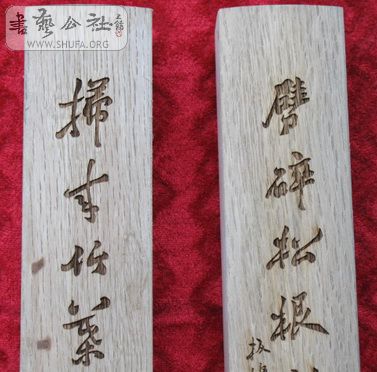 書藝公社
WWW.SHUFA.ORG
掃来竹葉
劈碎松根
板